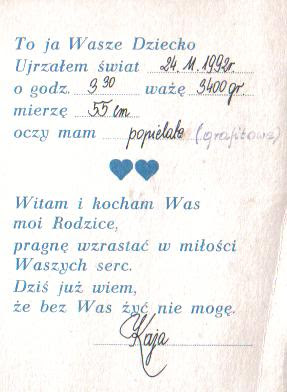 To ja Wasze Dziecko
Ujrzałem świat 24.11.1992r
o godz. 3 30 ważę 3400gr.
mierzę 55 cm
oczy mam popielate (grafitowe)
Witam i kocham Was
moi Rodzice,
pragnę wzrastać w miłości
Waszych serc.
Dziś już wiem,
że bez Was żyć nie mogę.
Kaja